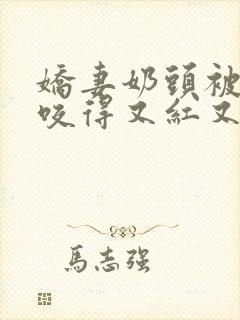 嬌妻奶頭被
咬得又紅又
馬志強